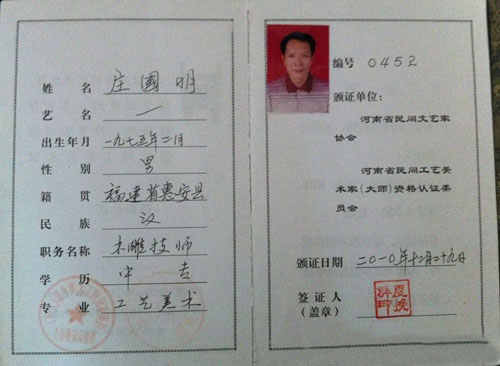 姓名 庄國明
艺名 一
出生年月 一九七五年二月
性别 男
籍贯 福建省惠安县
民族 汉
职务名称 木雕技师
学历 中专
专业 工艺美术
编号 0452
颁证单位:
河南省民间文艺家
协会
河南省民间工艺美
术家(大师)资格认证委
员会
颁证日期 二〇一〇年十二月二十九日
签证人
(盖章)